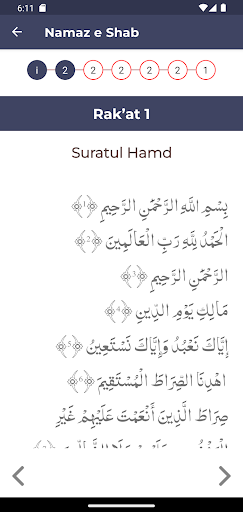 6:11
Namaz e Shab
i 2 2 2 2 2 1
Rak'at 1
Suratul Hamd
بِسْمِ اللَّهِ الرَّحْمَٰنِ الرَّحِيمِ ﴿١﴾
الْحَمْدُ لِلَّهِ رَبِّ الْعَالَمِينَ ﴿٢﴾
الرَّحْمَٰنِ الرَّحِيمِ ﴿٣﴾
مَالِكِ يَوْمِ الدِّينِ ﴿٤﴾
إِيَّاكَ نَعْبُدُ وَإِيَّاكَ نَسْتَعِينُ ﴿٥﴾
اهْدِنَا الصِّرَاطَ الْمُسْتَقِيمَ ﴿٦﴾
صِرَاطَ الَّذِينَ أَنْعَمْتَ عَلَيْهِمْ غَيْرِ